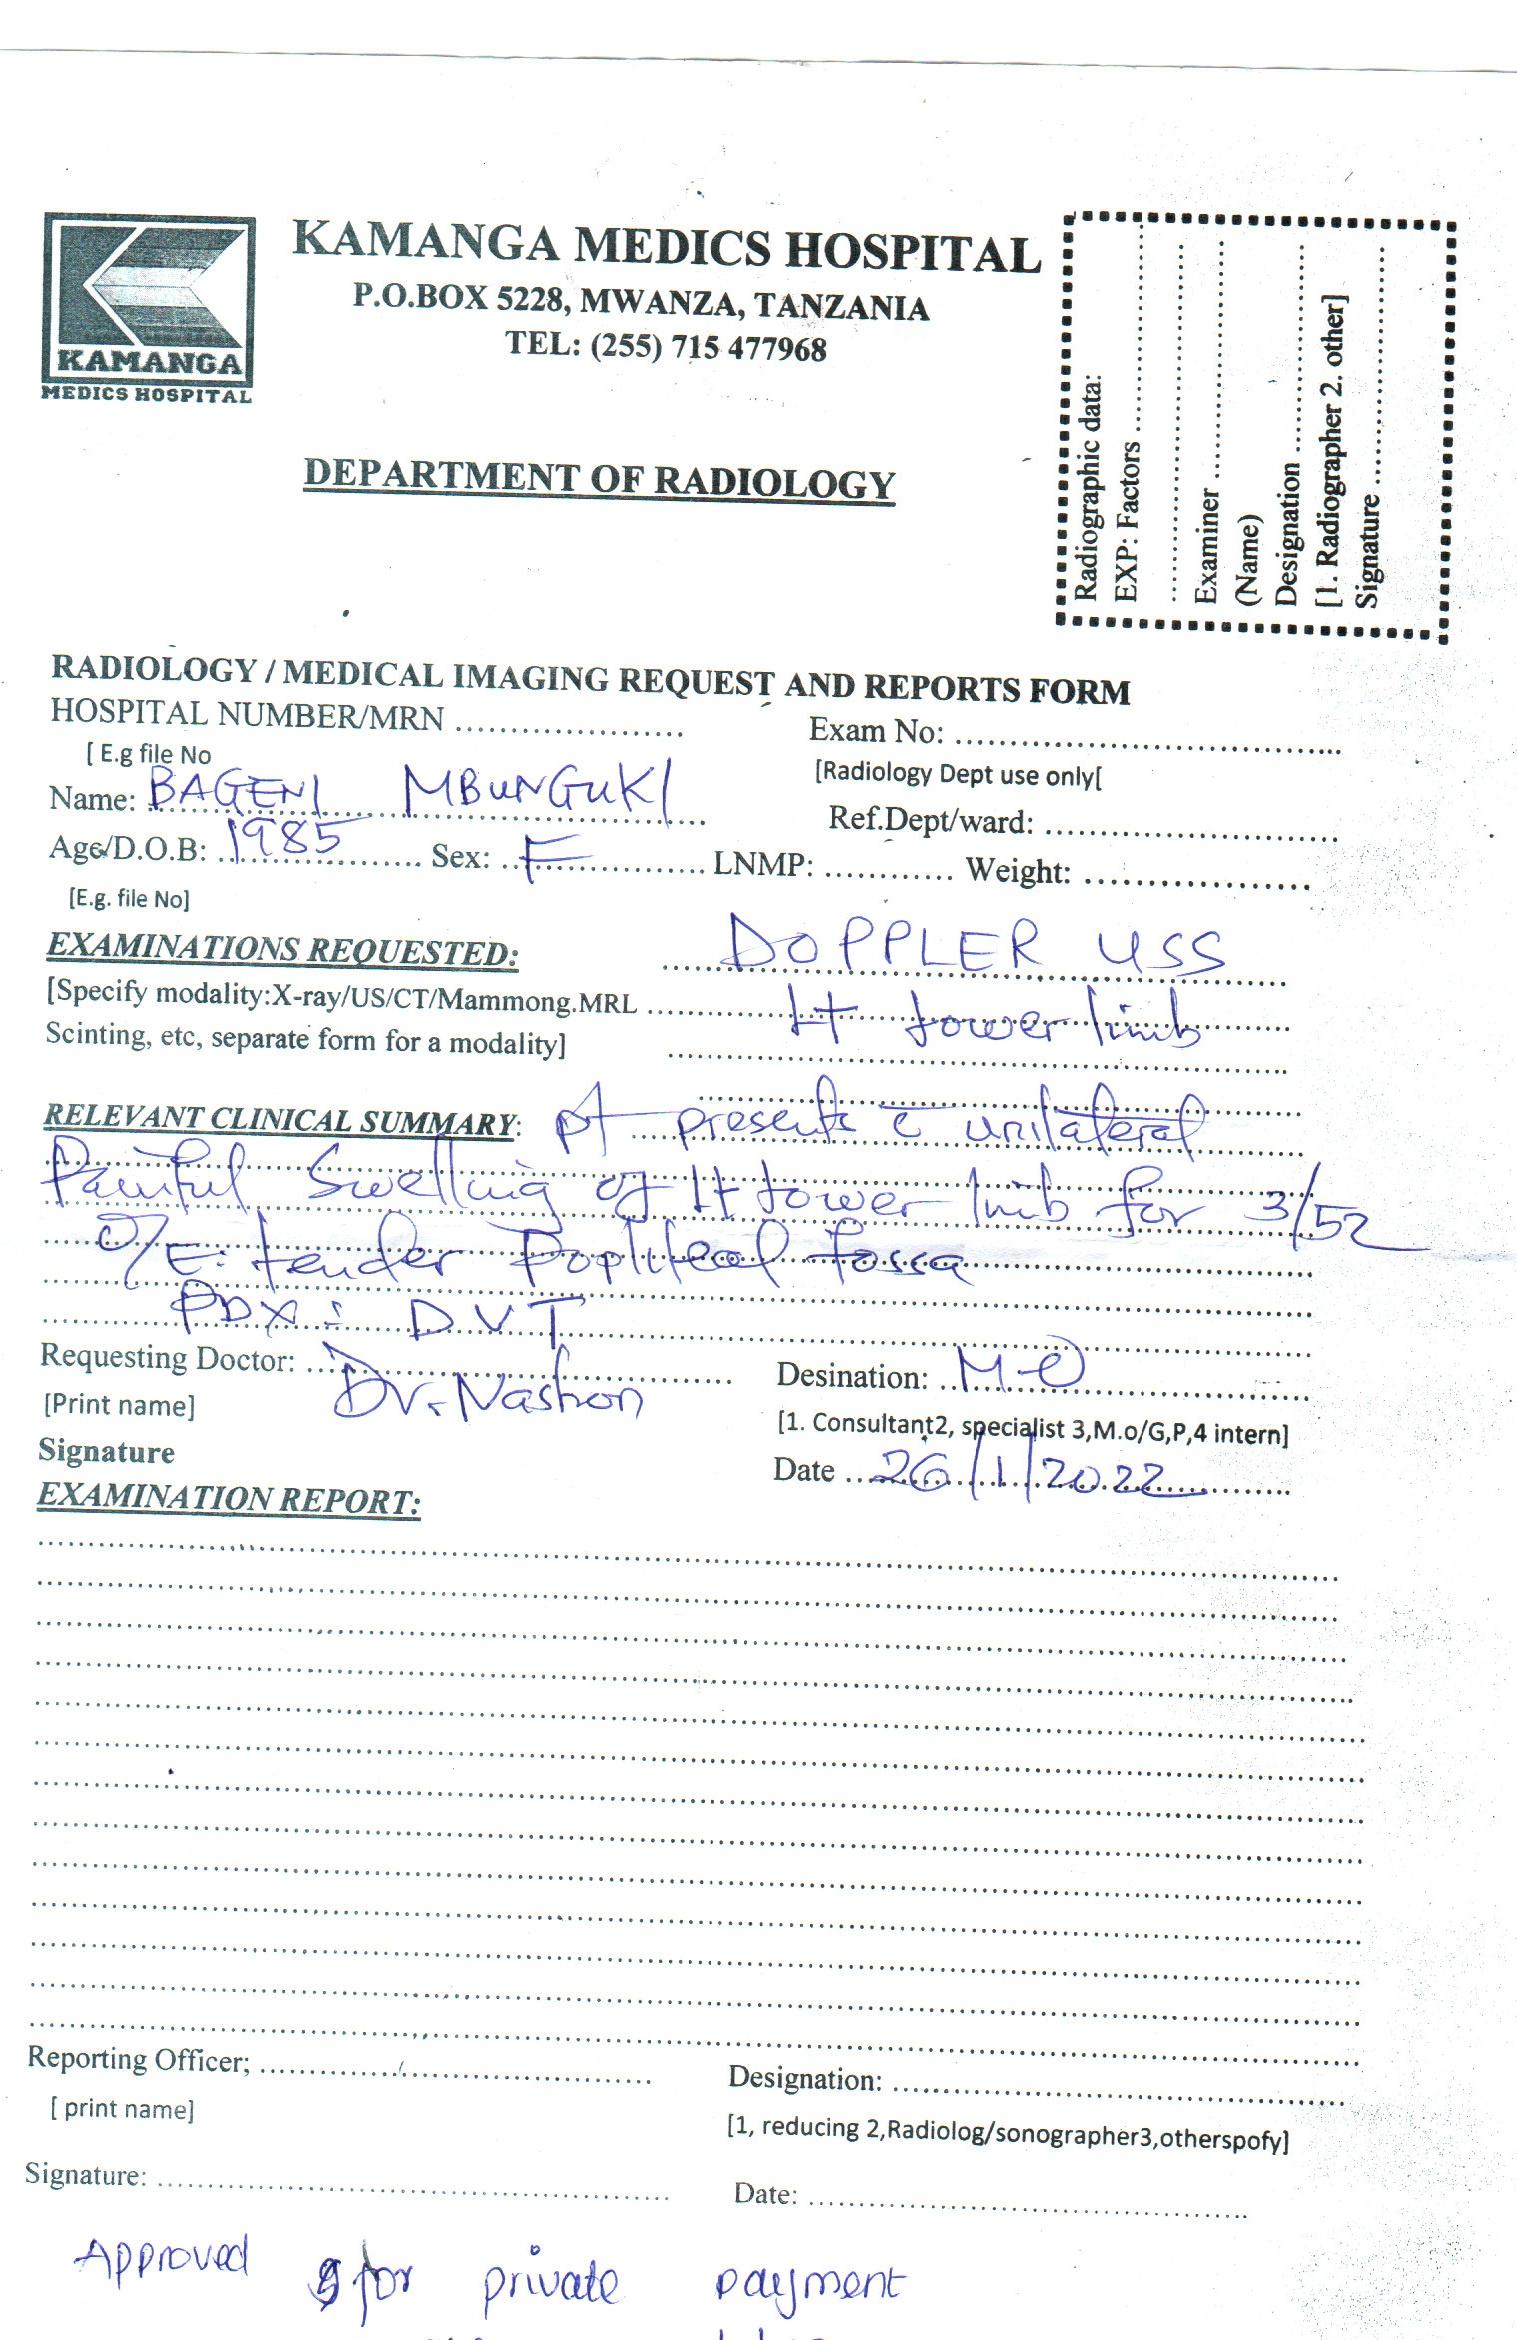 KAMANGA MEDICS HOSPITAL
P.O.BOX 5228, MWANZA, TANZANIA
TEL: (255) 715 477968
KAMANGA
MEDICS HOSPITAL
DEPARTMENT OF RADIOLOGY
Radiographic data:
EXP: Factors ....................
....................
Examiner ....................
(Name)
Designation ....................
[1. Radiographer 2. other]
Signature ....................
RADIOLOGY / MEDICAL IMAGING REQUEST AND REPORTS FORM
HOSPITAL NUMBER/MRN .................... Exam No: ....................
[ E.g file No [Radiology Dept use only[
Name: BAGENI MBUNGUKI Ref.Dept/ward: ....................
Age/D.O.B: 1985 Sex: F LNMP: ............ Weight: ....................
[E.g. file No]
EXAMINATIONS REQUESTED: DOPPLER USS
[Specify modality:X-ray/US/CT/Mammong.MRL Lt Lower limb
Scinting, etc, separate form for a modality]
RELEVANT CLINICAL SUMMARY: pt presents c̄ unilateral
Painful Swelling of Lt Lower limb for 3/52
O/E: tender Popliteal fossa
PDX: DVT
Requesting Doctor: Dr. Nashon Desination: M.O
[Print name] [1. Consultant2, specialist 3,M.o/G,P,4 intern]
Signature Date 26/1/2022
EXAMINATION REPORT:
Reporting Officer; .................... Designation: ....................
[ print name] [1, reducing 2,Radiolog/sonographer3,otherspofy]
Signature: .................... Date: ....................
Approved for private payment